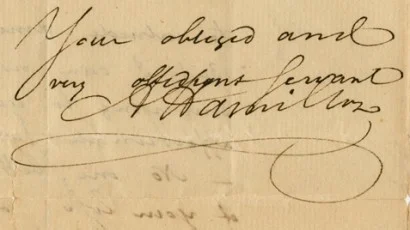 Your obliged and
very obedient Servant
A Hamilton